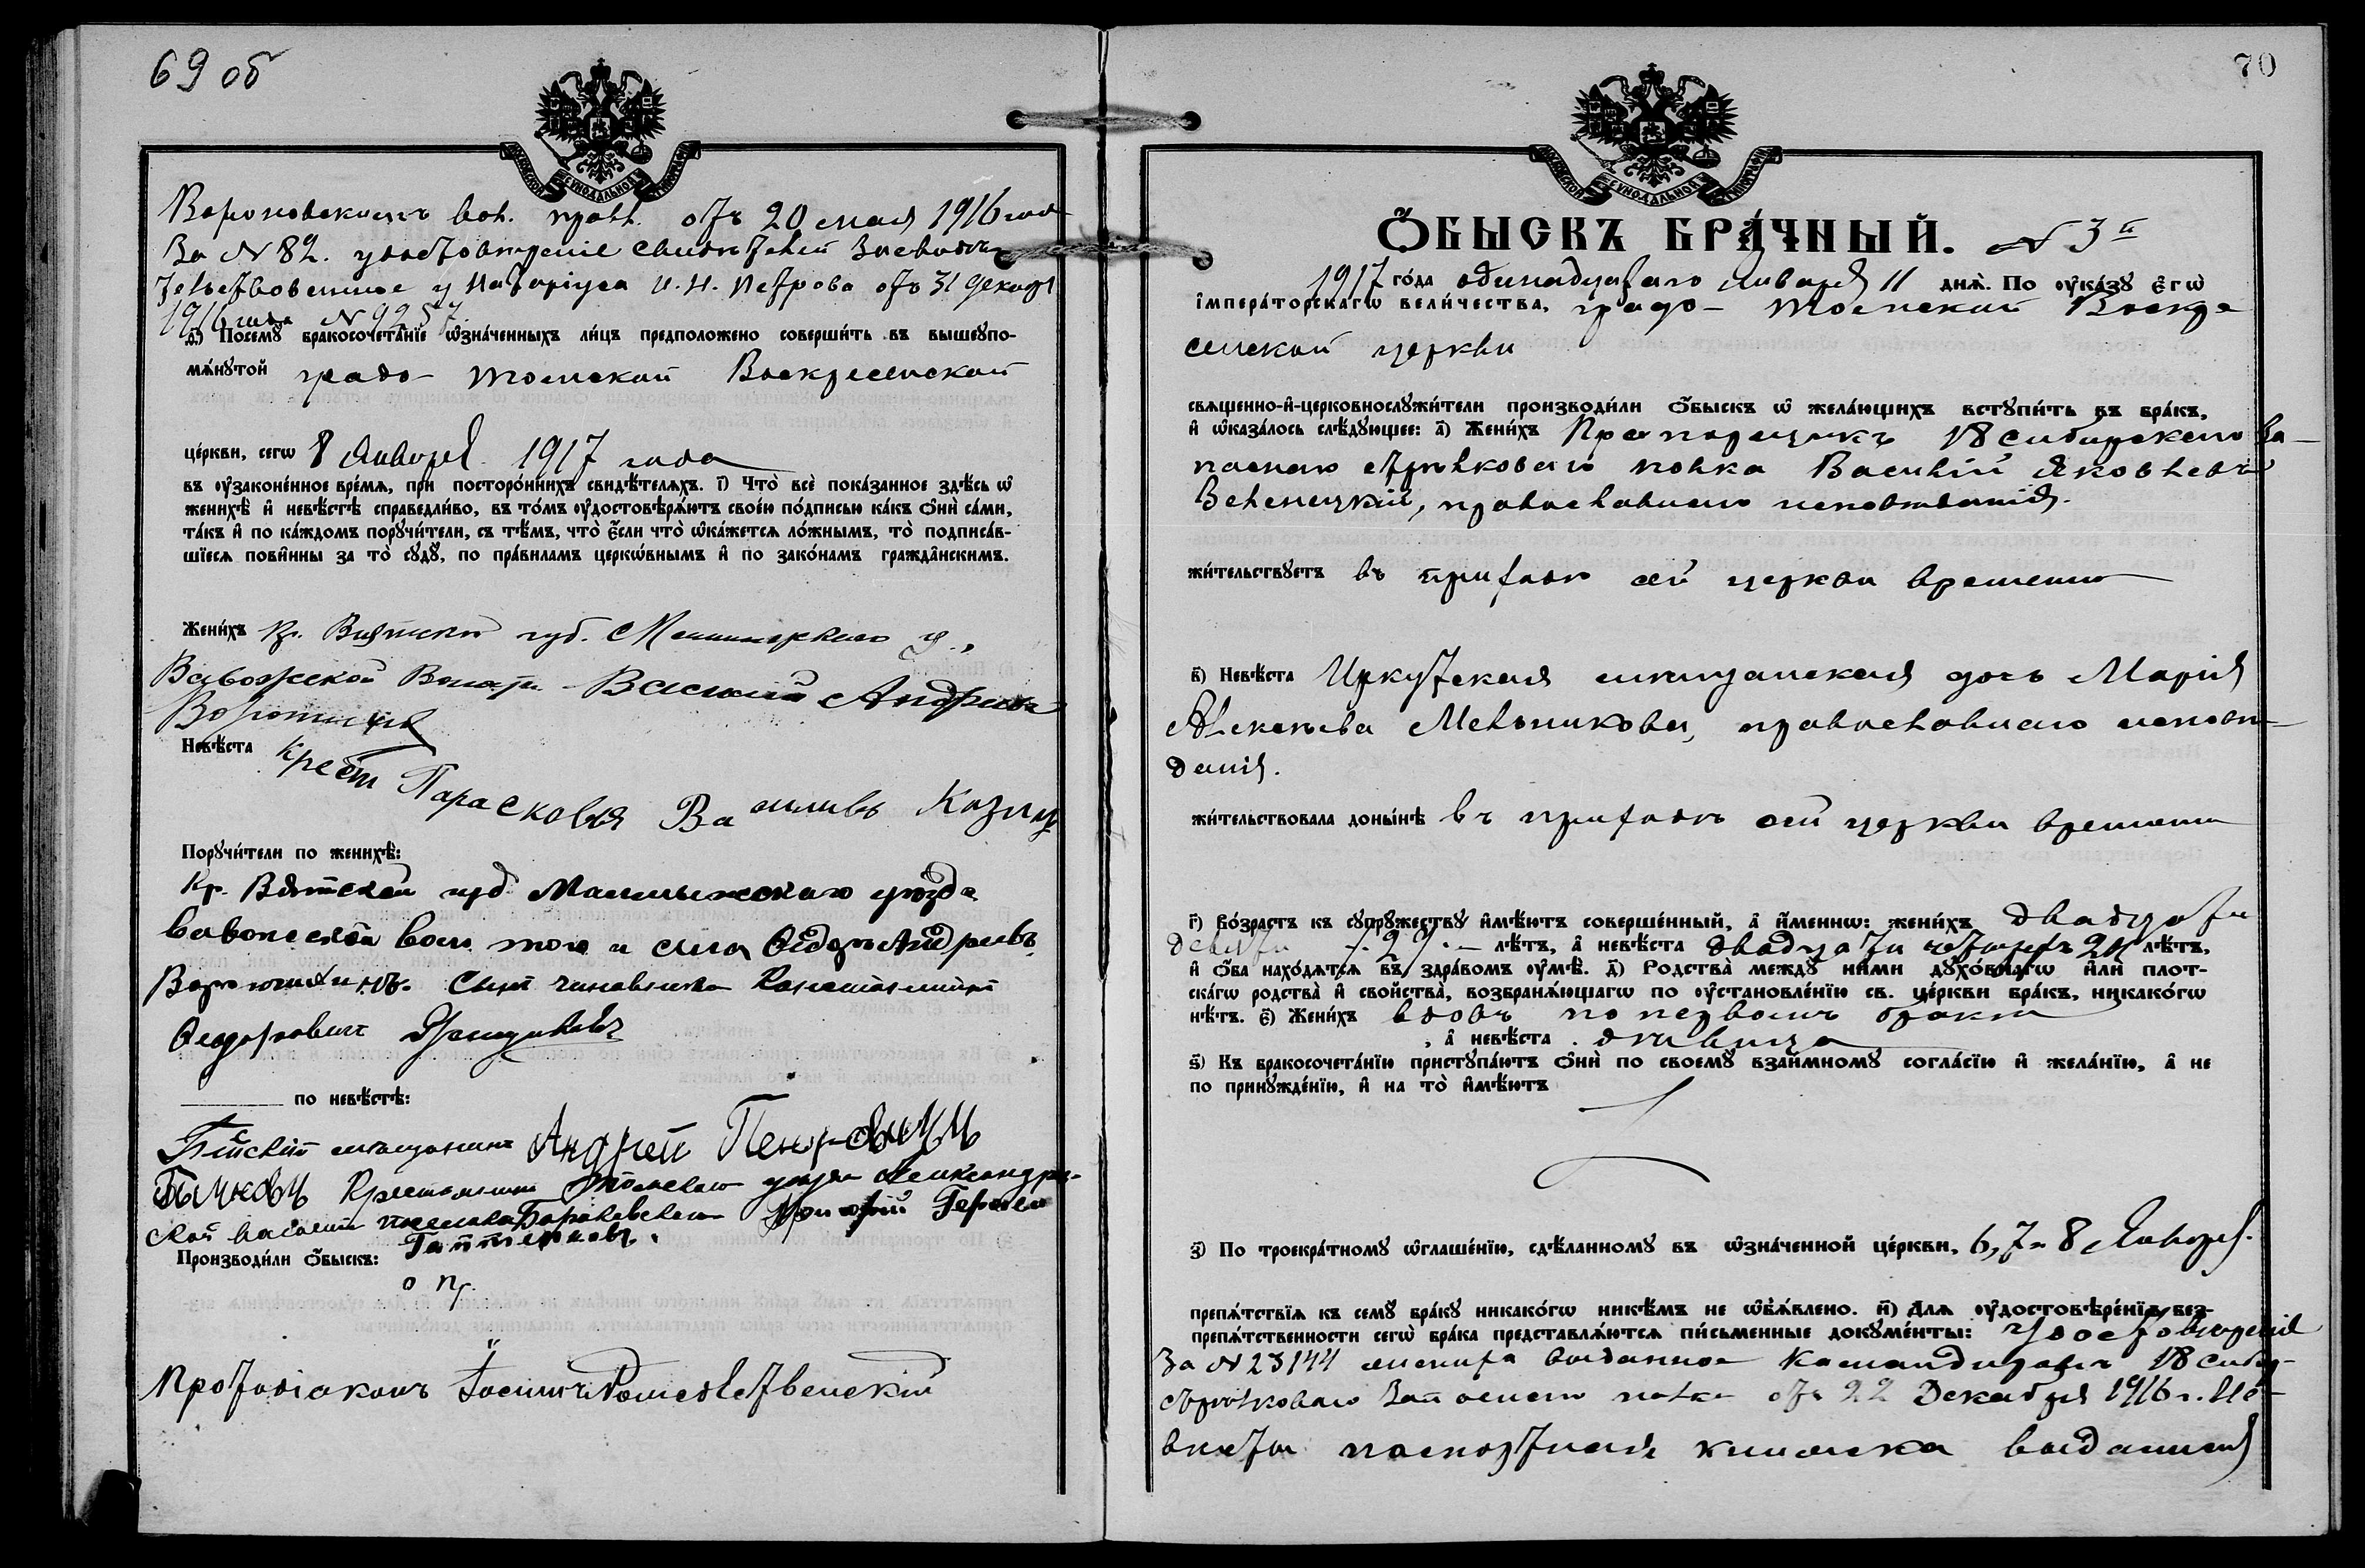 69 об
СѴНОДАЛЬНОЙ
Вороновскимъ вол. правл. отъ 20 мая 1916 года
За N 82. удостовѣреніе свидѣтелей засвидѣ-
тельствованное у Нотаріуса И. Н. Петрова отъ 31 декабр
1916 года N 9257.
Посемꙋ̀ бракосочета́нїе ѡ҆зна́ченныхъ ли́цъ предположено соверши́ть въ вышеꙋпо-
мѧ́нꙋтой градо- Томской Воскресенской
це́ркви, сегѡ 8 Января 1917 года
въ ᲂу҆законе́нное вре́мѧ, при посторо́ннихъ свидѣ́телѧхъ. і҃) Что̀ всѐ пока́занное здѣ́сь ѡ
женихѣ̀ и҆ невѣ́стѣ справедли́во, въ то́мъ ᲂу҆достовѣрѧ́ютъ свое́ю по́дписью ка́къ ѻ҆нѝ са́ми,
та́къ и҆ по ка́ждомъ порꙋчи́тели, съ тѣ́мъ, что̀ є҆́сли что̀ ѡ҆ка́жетсѧ ло́жнымъ, то̀ подписа́в-
шїесѧ пови́нны за то̀ сꙋдꙋ̀, по пра́виламъ церко́внымъ и҆ по зако́намъ гражда́нскимъ.
Жени́хъ Кр. Вятской губ. Малмыжскаго у.,
Вавожской Волости Василий Андреевъ
Воротинцевъ
Невѣ́ста Крест Парасковья Васильевъ
Порꙋчи́тели по женихѣ̀:
Кр. Вятской губ Малмыжскаго уѣзда
Вавожской вол. того и села Ѳедоръ Андреевъ
Сынъ чиновника Константинъ
Ѳеодоровичъ
по невѣ́стѣ:
Бійскій мѣщанинъ Андрей Петровичъ
Бычковъ Крестьянинъ Томскаго уѣзда Александров-
ской волости поселка
Производи́ли ѻ҆́быскъ:
о пр.
Протодіаконъ Іоаннъ Рождественскій
70
СѴНОДАЛЬНОЙ
Ѻ҆́БЫСКЪ БРА́ЧНЫЙ. N 3й
1917 го́да одинадцатаго Января 11 днѧ̀. По ᲂу҆ка́зꙋ Є҆гѡ̀
І҆мпера́торскагѡ вели́чества, градо- Томской Воскре
сенской церкви
свѧще́нно-и҆-церковнослꙋжи́тели производи́ли ѻ҆́быскъ ѡ҆ жела́ющихъ встꙋпи́ть въ бра́къ,
и҆ ѡ҆каза́лось слѣ́дꙋющее: а҃) Жени́хъ Прапорщикъ 18 Сибирскаго За-
паснаго стрѣлковаго полка Василій Яковлевъ
Веленецкій, православнаго исповѣданія.
жи́тельствꙋетъ въ приходѣ сей церкви временно
в҃) Невѣ́ста Иркутская мѣщанская дочь Марія
Алексѣева Мельникова, православнаго исповѣ-
данія.
жи́тельствовала доны́нѣ въ приходѣ сей церкви временно
г҃) Во́зрастъ къ сꙋпрꙋ́жествꙋ и҆мѣ́ютъ соверше́нный, а҆ и҆́менно: жени́хъ двадцати
девяти 29 лѣ́тъ, а҆ невѣ́ста двадцати четырехъ 24 лѣ́тъ,
и҆ ѻ҆́ба нахо́дѧтсѧ въ здра́вомъ ᲂу҆мѣ̀. д҃) Родства̀ междꙋ̀ ни́ми дꙋхо́внагѡ и҆лѝ плот-
ска́гѡ родства̀ и҆ свойства̀, возбранѧ́ющагѡ по ᲂу҆становле́нїю св. це́ркви бра́къ, никако́гѡ
нѣ́тъ. є҃) Жени́хъ вдовъ по первомъ бракѣ
, а҆ невѣ́ста дѣвица
ѕ҃) Къ бракосочета́нїю пристꙋпа́ютъ ѻ҆нѝ по своемꙋ̀ взаи́мномꙋ согла́сїю и҆ жела́нїю, а҆ не
по принꙋжде́нїю, и҆ на то̀ и҆мѣ́ютъ
з҃) По троекра́тномꙋ ѡ҆глаше́нїю, сдѣ́ланномꙋ въ ѡ҆зна́ченной це́ркви, 6, 7 и 8 Января.
препѧ́тствїѧ къ семꙋ̀ бра́кꙋ никако́гѡ никѣ́мъ не ѡ҆б̾ѧ́влено. и҃) Длѧ ᲂу҆достовѣре́нїѧ без-
препѧ́тственности сегѡ̀ бра́ка представлѧ́ютсѧ пи́сьменные докꙋме́нты: Удостовѣреніе
За N 23144 выданное Командиромъ 18 Сибир-
стрѣлковаго Запаснаго полка отъ 22 Декабря 1916 г. Не-
вѣсты паспортная книжка выданная